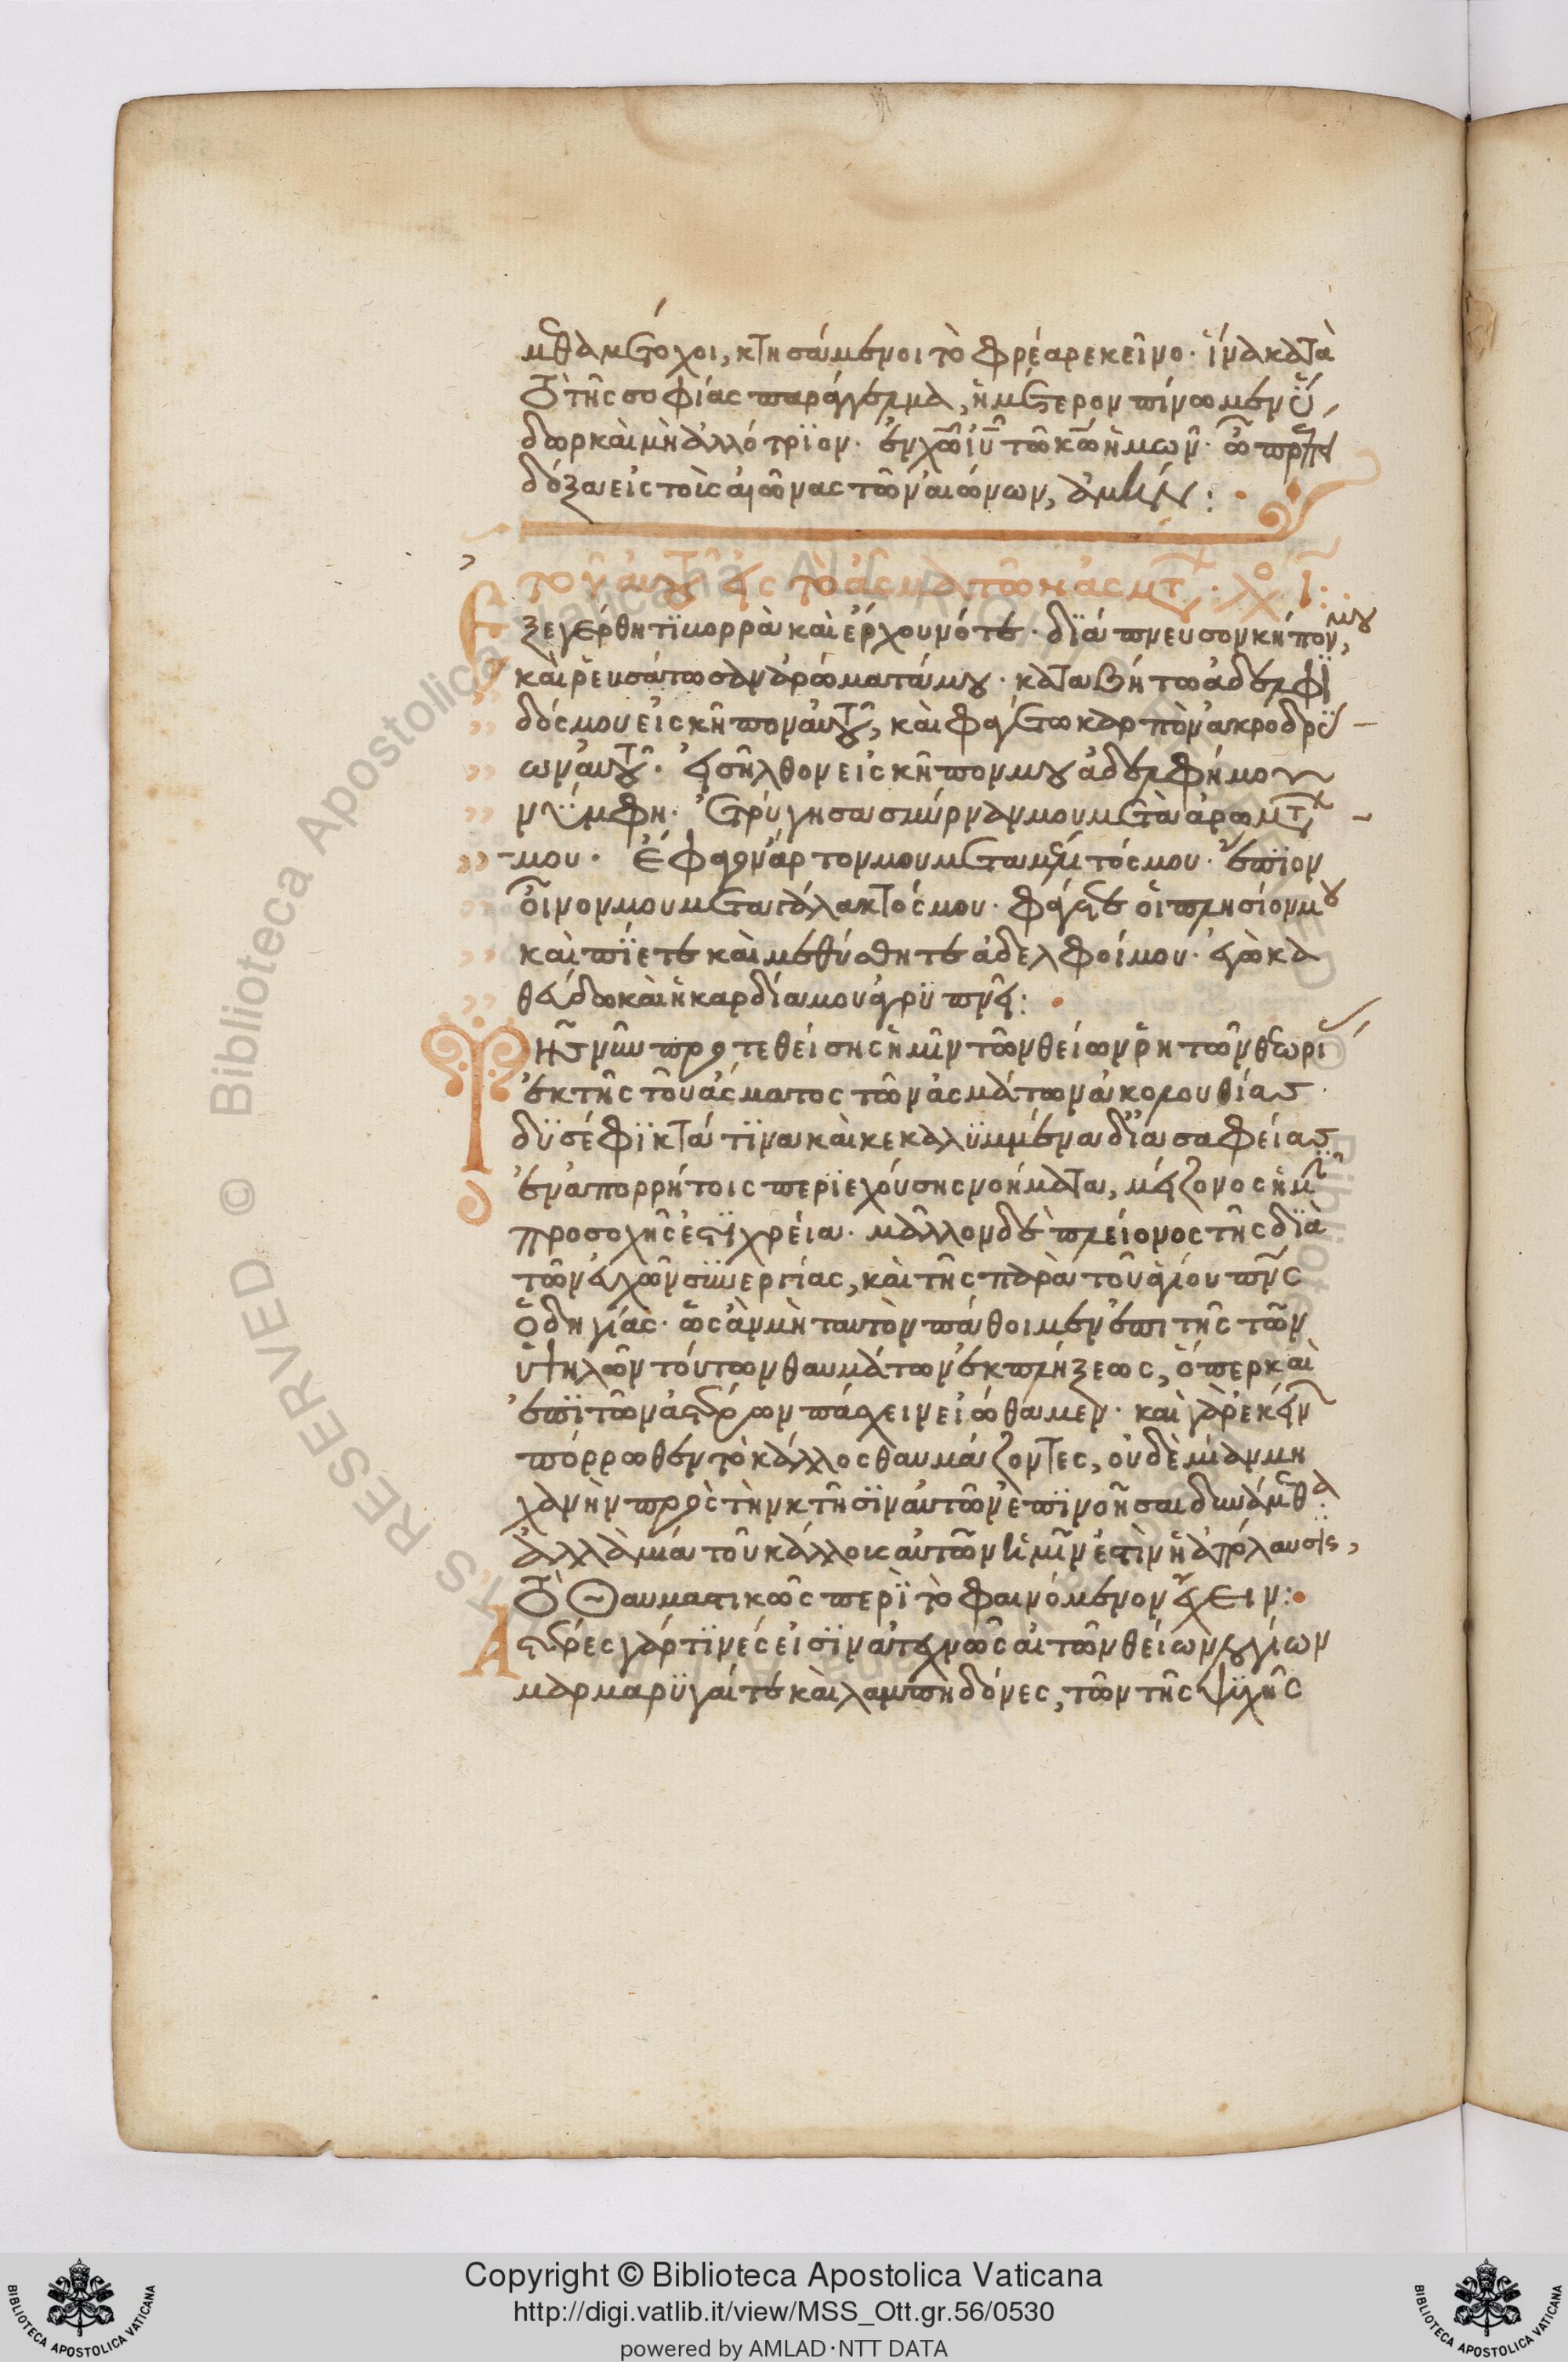 μεθα μέτοχοι, κτησάμενοι τὸ φρέαρ εκεῖνο· ἵνα κατὰ
τὸ τῆς σοφίας παράγγελμα, ἡμέτερον πίνωμεν ὕ
δωρ καὶ μὴ ἀλλότριον· ἐν χῶ ιῦ τῶ κῶ ἡμῶν· ὧ πρέπει
δόξα εἰς τοὺς αἰῶνας τῶν αἰώνων, ἀμήν:
τοῦ αὐτοῦ εἰς τὸ ἆσμα τῶν ἀσμάτ· λόγ ι:
Ἐξεγέρθητι βορρὰ καὶ ἔρχου νότε· διάπνευσον κήπόν μου,
καὶ ῥευσάτωσαν ἀρώματά μου· καταβήτω ἀδελφι
δός μου εἰς κῆπον αὐτοῦ, καὶ φαγέτω καρπὸν ἀκροδρύ
ων αὐτοῦ· εἰσῆλθον εἰς κῆπον μου ἀδελφή μου
νύμφη· ἐτρύγησα σμύρναν μου μετὰ ἀρωμάτων
μου· ἔφαγον ἄρτον μου μετα μέλιτός μου· ἔπιον
οἶνον μου μετα γάλακτός μου· φάγετε οἱ πλησίον μου
καὶ πίετε καὶ μεθύσθητε ἀδελφοί μου· ἐγὼ κα
θεύδω καὶ ἡ καρδία μου ἀγρυπνεῖ:
Τῆς νῦν προτεθείσης ἡμῖν τῶν θείων ῥητῶν θεωρί
ἐκ τῆς τοῦ ἄσματος τῶν ἀσμάτων ἀκολουθίας
δυσέφικτά τινα καὶ κεκαλυμμένα δι ἀσαφείας
ἐν ἀπορρήτοις περιεχούσης νοήματα, μείζονος ἡμῖν
προσοχῆς ἐστὶ χρεία· μᾶλλον δὲ πλείονος τῆς διὰ
τῶν εὐχῶν συνεργίας, καὶ τῆς παρὰ τοῦ ἁγίου πνς
ὁδηγίας· ὡς ἂν μὴ ταυτὸν πάθοιμεν ἐπι τῆς τῶν
ὑψηλῶν τούτων θαυμάτων ἐκπλήξεως, ὅπερ καὶ
ἐπὶ τῶν ἀστέρων πάσχειν εἰώθαμεν· καὶ γὰρ ἐκείνων
πόρρωθεν τὸ κάλλος θαυμάζοντες, οὐδὲ μίαν μη
χανὴν πρὸς τὴν κτῆσιν αὐτῶν ἐπινοῆσαι δυνάμεθα.
ἀλλὰ μία τοῦ κάλλους αὐτῶν ἡμῖν ἐστὶν ἡ ἀπόλαυσις,
τὸ θαυμαστικῶς περὶ τὸ φαινόμενον ἔχειν:
Ἀστέρες γάρ τινές εἰσὶν ἀτεχνῶς αἱ τῶν θείων λογίων
μαρμαρυγαί τε καὶ λαμπηδόνες, τῶν τῆς ψυχῆς
Copyright © Biblioteca Apostolica Vaticana
http://digi.vatlib.it/view/MSS_Ott.gr.56/0530
powered by AMLAD·NTT DATA